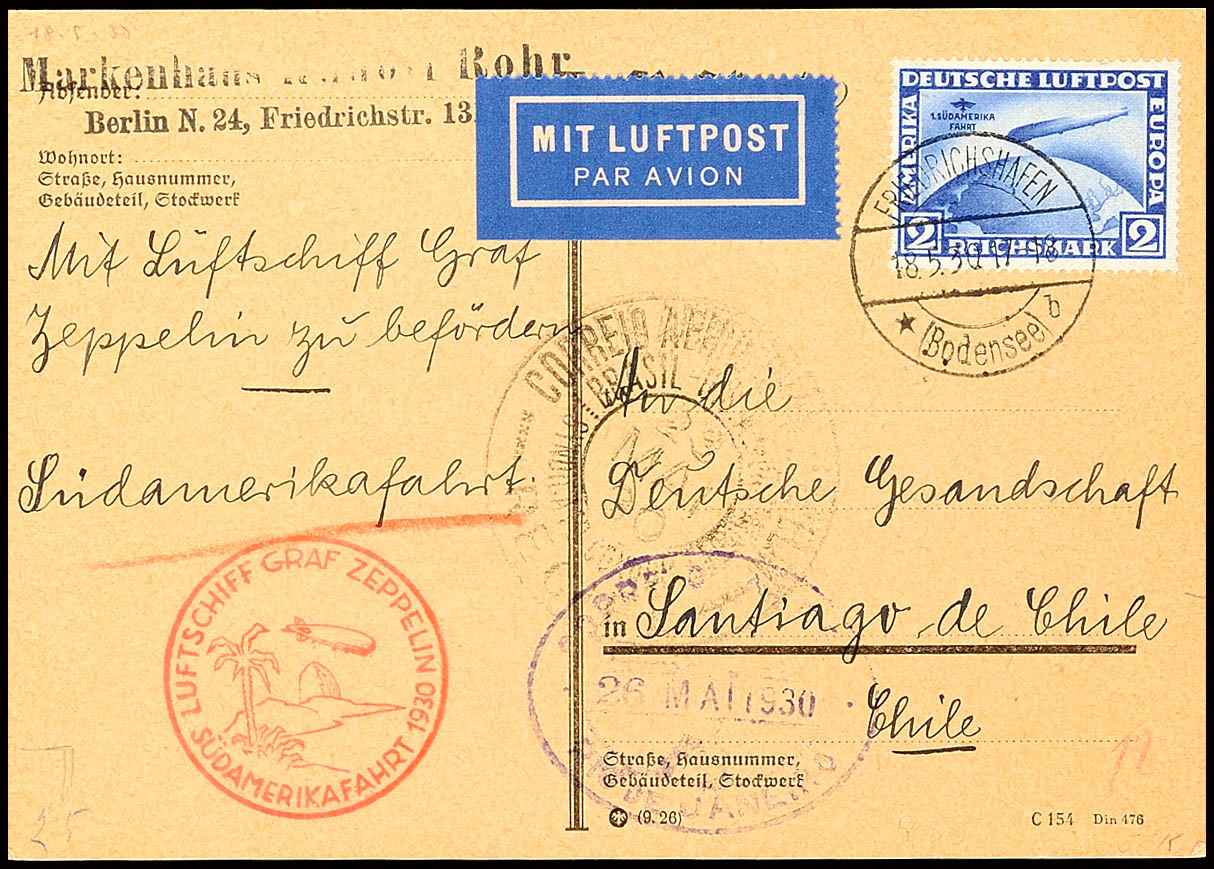 Markenhaus Rohr
Absender:
Berlin N. 24, Friedrichstr. 13
Wohnort:
Straße, Hausnummer,
Gebäudeteil, Stockwerk
MIT LUFTPOST
PAR AVION
DEUTSCHE LUFTPOST
AMERIKA
EUROPA
1. SÜDAMERIKA
FAHRT
2 REICHSMARK 2
FRIEDRICHSHAFEN
18.5.30.17-18
(Bodensee) b
Mit Lüftschiff Graf
Zeppelin zu befördern
Südamerikafahrt.
CORREIO
BRASIL
An die
Deutsche Gesandschaft
in Santiago de Chile
Chile
LUFTSCHIFF GRAF ZEPPELIN
SÜDAMERIKAFAHRT 1930
26 MAI 1930
DE JANEIRO
Straße, Hausnummer,
Gebäudeteil, Stockwerk
(9.26)
C 154 Din 476
25
12